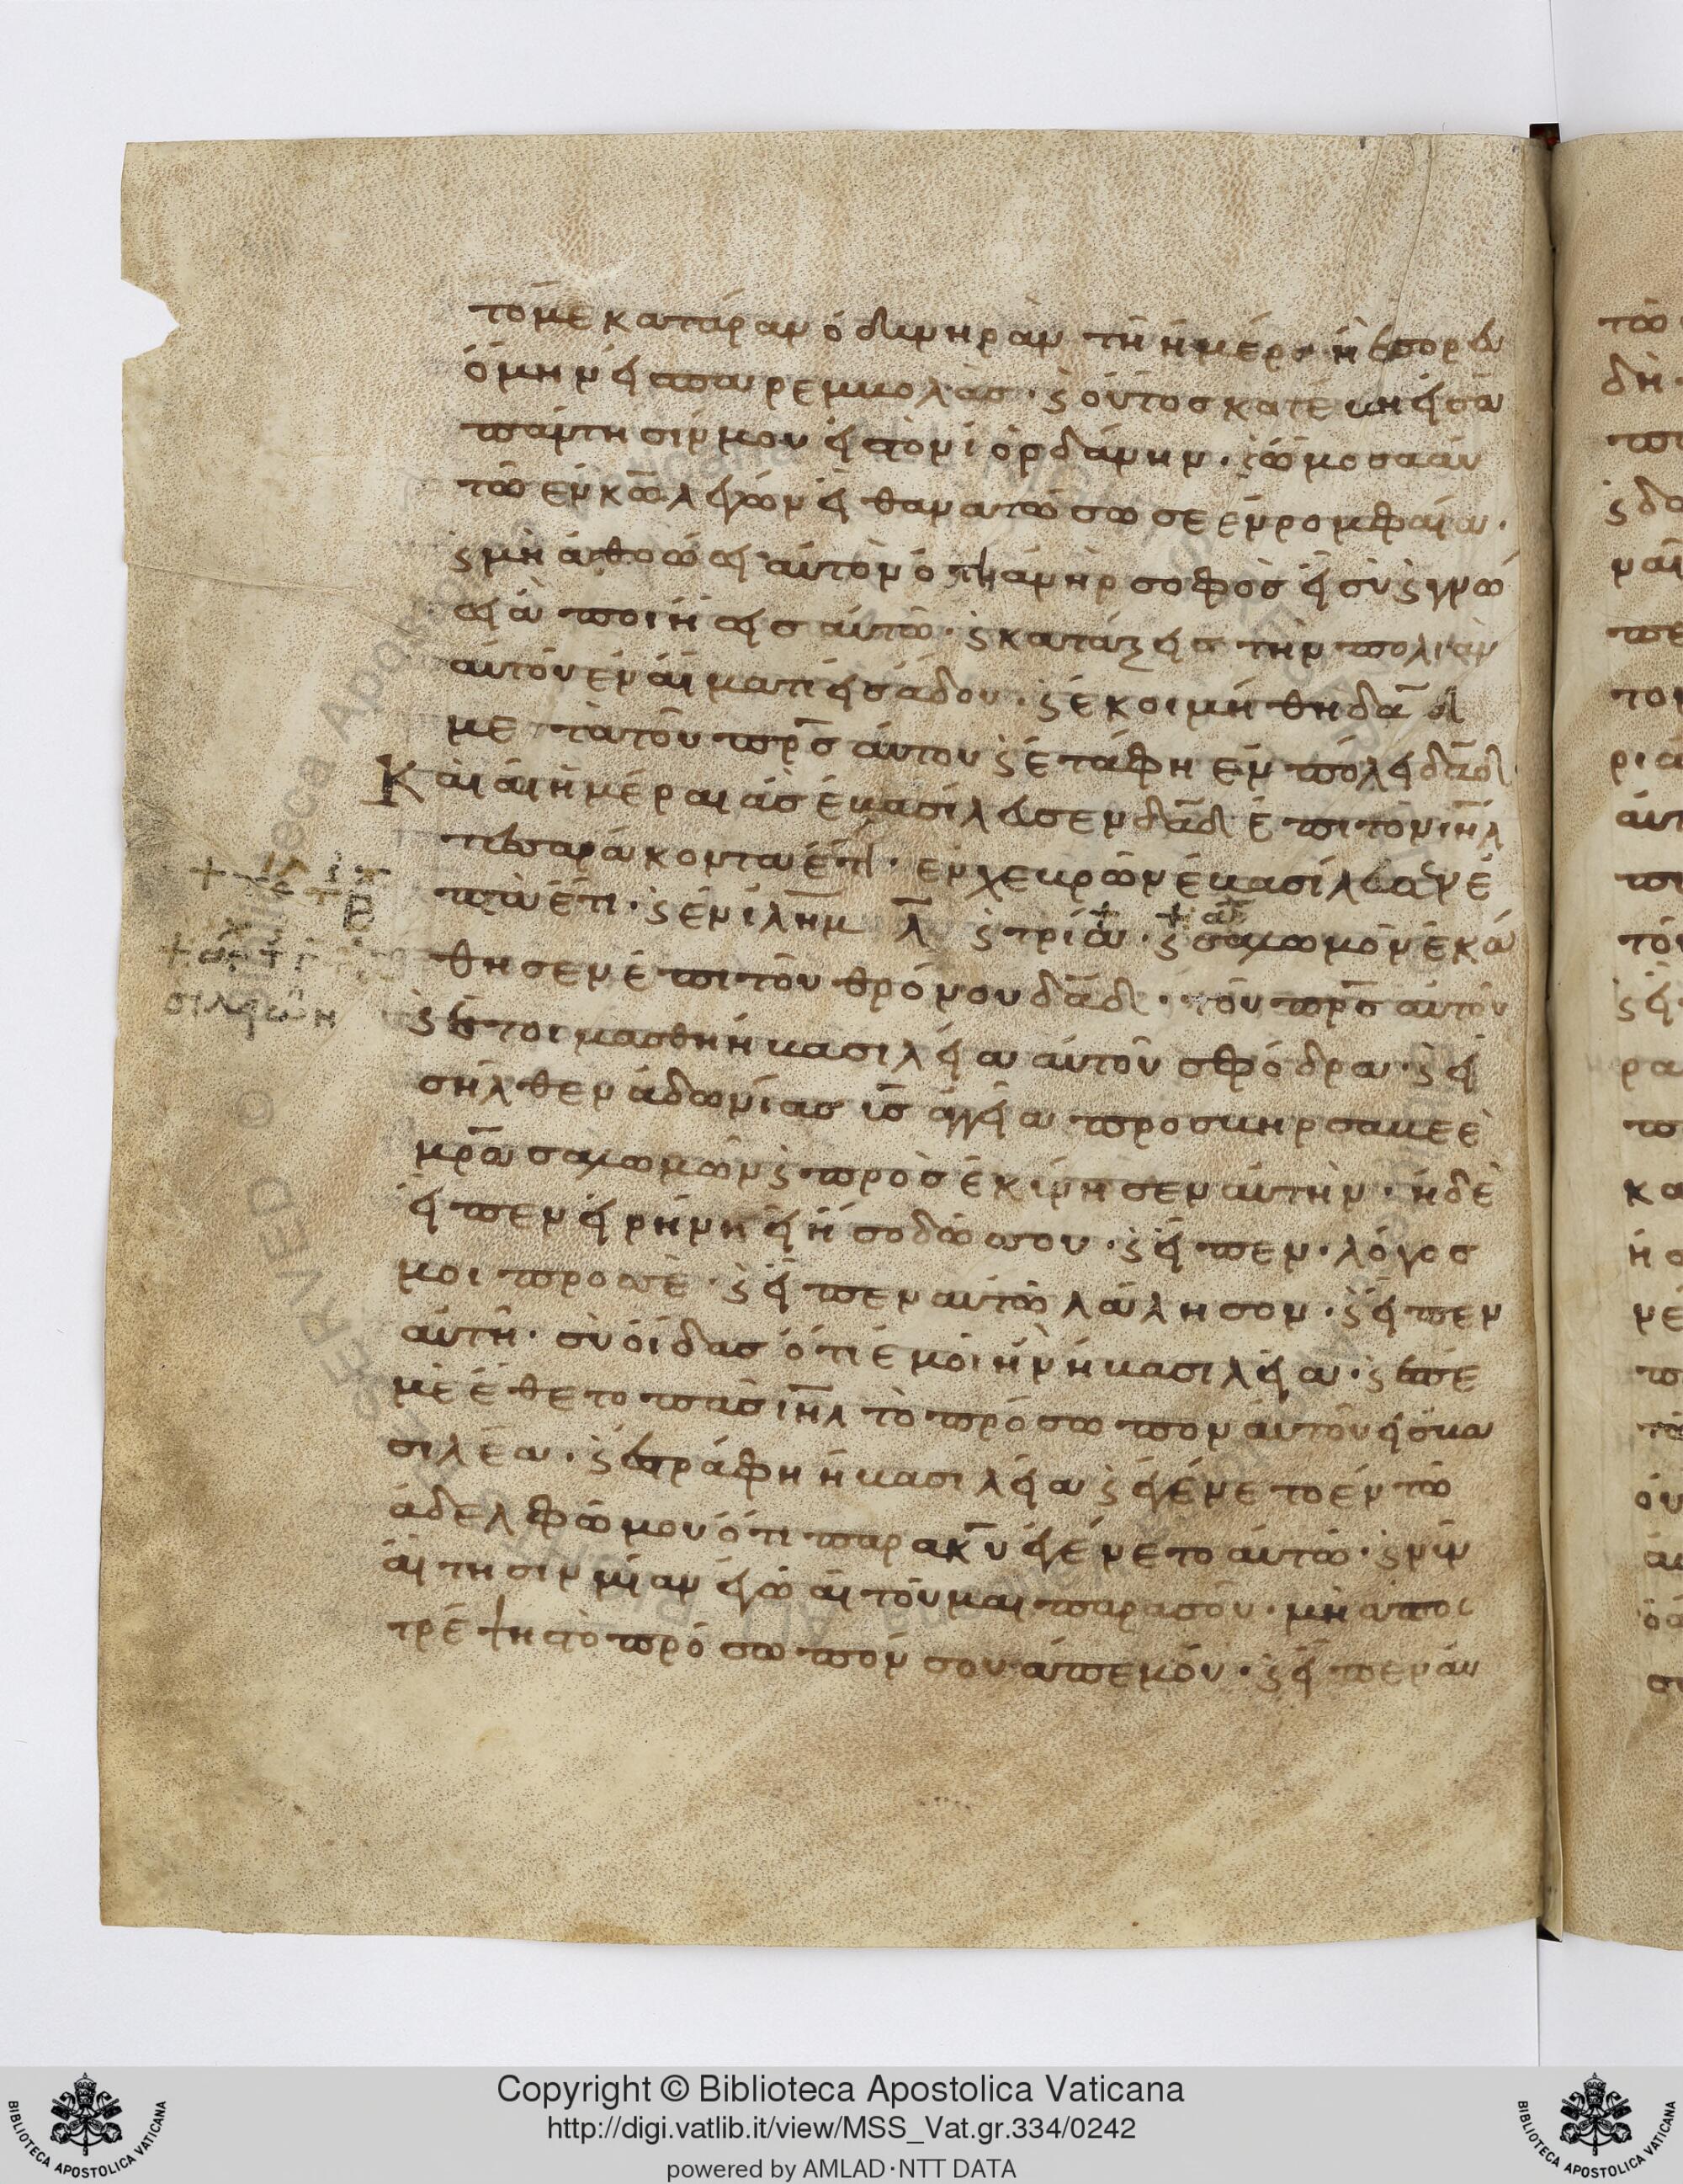 το με κατάραν ὀδυνηρὰν τῆ ἡμέρα ἧ ἐπορευ
όμην εἰς παρεμβολάς· ϗ οὗτος κατέβη εἰς ἀ
πάντησίν μου εἰς τὸν ἰορδάνην· ϗ ὤμοσα αὐ
τῶ ἐν κω λέγων εἰ θανατώσω σε ἐν ρομφαία·
ϗ μὴ ἀθοώσης αὐτὸν ὅτι ἀνὴρ σοφὸς εἶ σὺ ϗ γνώ
ση ἃ ποιήσης αὐτῶ· ϗ κατάξεις τὴν πολιὰν
αὐτοῦ ἐν αἵματι εἰς ἅδου· ϗ ἐκοιμήθη δαδ
μετὰ τοῦ πρς αὐτου ϗ ἐτάφη ἐν πόλει δαδ
Καὶ αἱ ἡμέραι ἃς ἐβασίλευσεν δαδ ἐπὶ τὸν ιηλ
τεσσαράκοντα ἔτη· ἐν χεβρῶν ἐβασίλευσεν ἑ
πτὰ ἔτι· ϗ ἐν ιλημ λ ϗ τρία· ϗ σαλωμὸν ἐκά
θησεν ἐπὶ τοῦ θρόνου δαδ· τοῦ πρς αὐτοῦ
ϗ ἑτοιμάσθη ἡ βασιλεία αὐτοῦ σφόδρα· ϗ εἰ
σῆλθεν ἀδωνίας υς ἀγγεία προς βηρσαβεὲ
μρα σαλωμῶν ϗ προσεκίνησεν αὐτὴν· ἡ δὲ
εἶπεν εἰρήνη ἡ ἥσοδώσου· ϗ εἶπεν· λόγος
μοι προσὲ· ϗ εἶπεν αὐτῶ λάλησον· ϗ εἶπεν
αὐτῆ· σὺ οἶδας ὅτι ἐμοὶ ἦν ἡ βασιλεία· ϗ ἐπέ
μὲ ἔθετο πᾶς ιηλ τὸ πρόσωπον αὐτοῦ εἰς βα
σιλέα· ϗ ἐστράφη ἡ βασιλεία ϗ ἐγένετο ἐν τῶ
ἀδελφῶ μου ὅτι παρα κυ ἐγένετο αὐτῶ· ϗ νῦν
αἴτησιν μίαν ἐγὼ αἰτοῦμαι παρὰ σοῦ· μὴ ἀποσ
τρέψη τὸ πρόσωπόν σου ἀπεμοῦ· ϗ εἶπεν αὐ
Copyright © Biblioteca Apostolica Vaticana
http://digi.vatlib.it/view/MSS_Vat.gr.334/0242
powered by AMLAD·NTT DATA
BIBLIOTECA APOSTOLICA VATICANA
BIBLIOTECA APOSTOLICA VATICANA